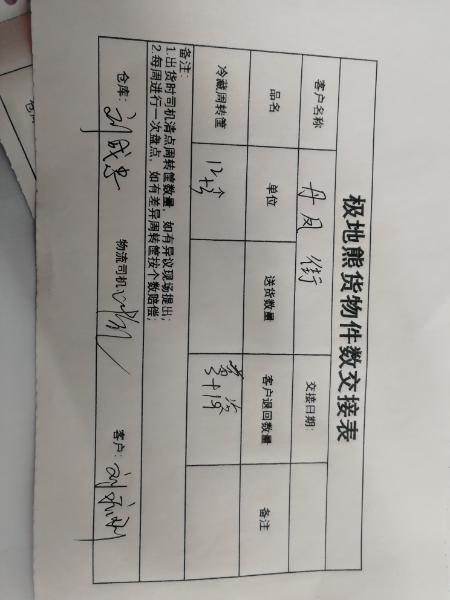 极地熊货物件数交接表
客户名称 丹凤街 交接日期:
品名 单位 送货数量 客户退回数量 备注
冷藏周转筐 12个
备注:
1.出货时司机清点周转筐数量,如有异议现场提出;
2.每周进行一次盘点,如有差异周转筐按个数赔偿;
仓库: 物流司机 客户: